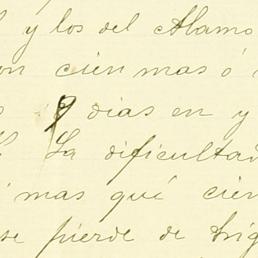 y los del Alamo
cien mas ó
dias en y
La dificultad
mas qué cien
se pierde de